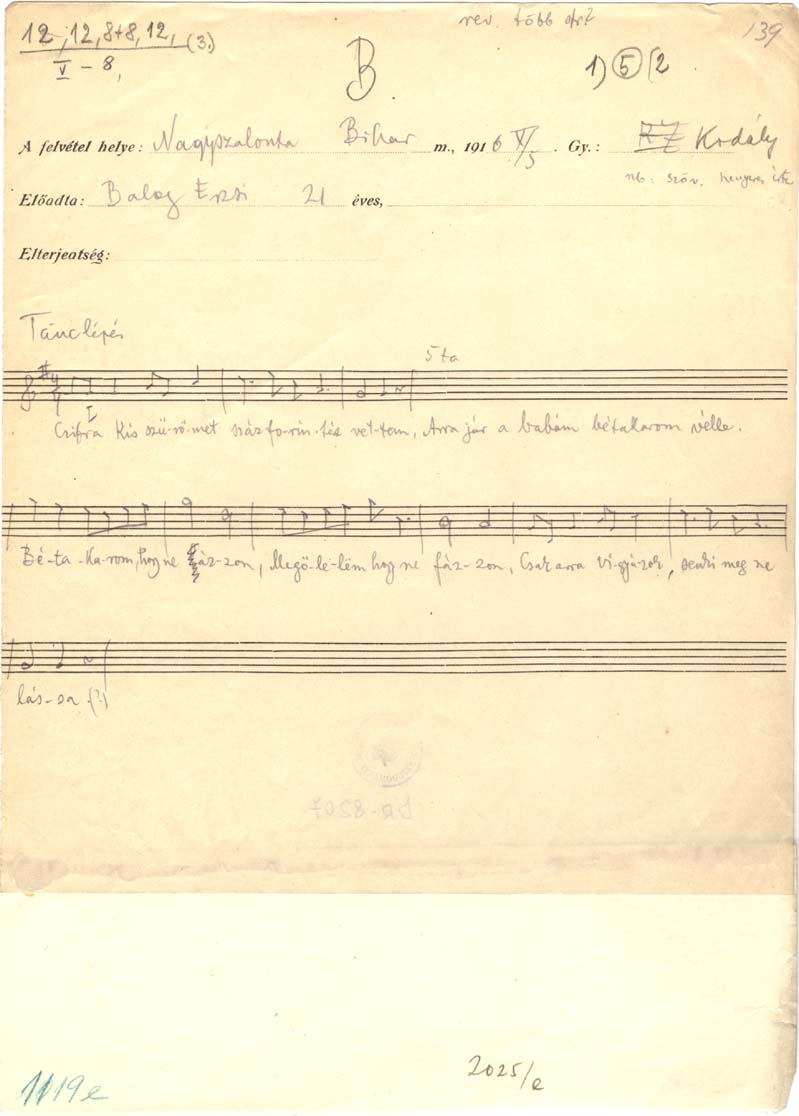 12, 12, 8+8, 12, (3.)
V - 8,
rev. több str?
139
B.
1) 5 (2
A felvétel helye: Nagyszalonta Bihar m., 1916 V/5. Gy.: Kodály
nb: szöv. Kenyeres írta
Előadta: Balog Erzsi 21 éves,
Elterjeatség:
Tánclépés
5ta
Czifra Kis szű-rö-met száz fo-rin-tér vet-tem, Arra jár a babám bétakarom vélle.
Bé-ta-ka-rom, hogy ne fáz-zon, Megö-le-lem hogy ne fáz-zon, Csak arra vi-gyázok, senki meg ne
lás-sa (?)
DA-8207
1119e
2025/e